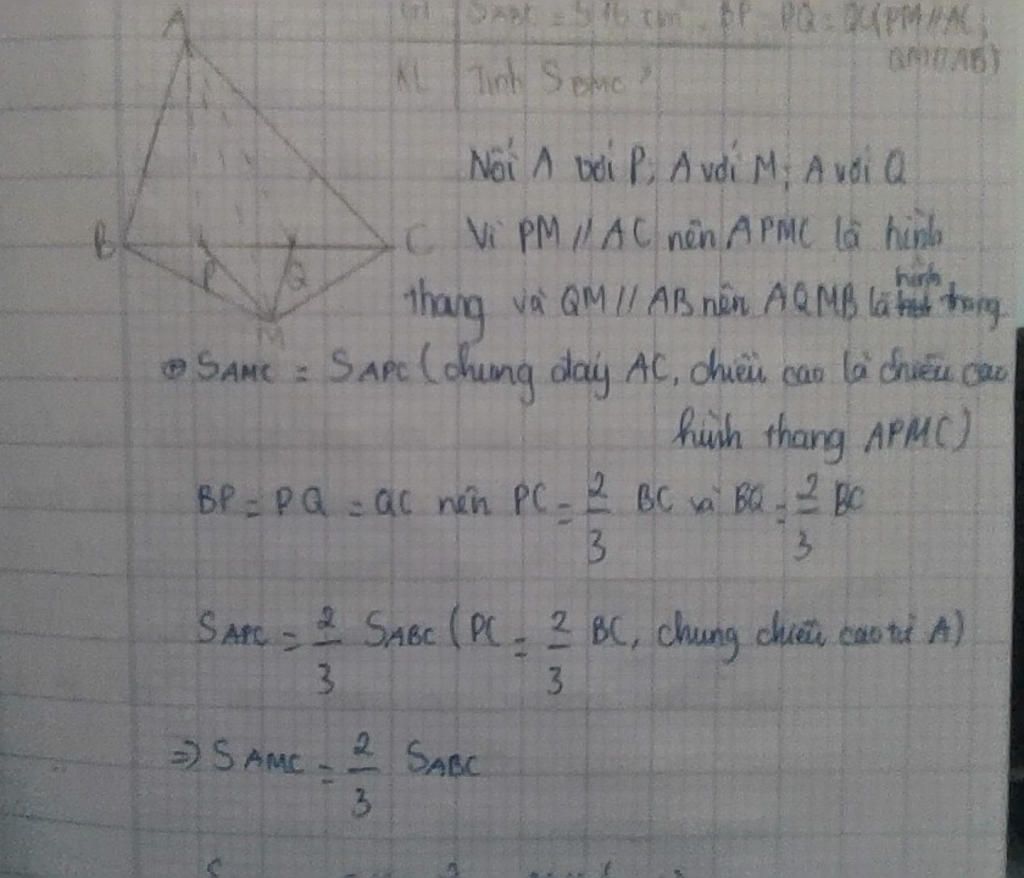 SABC = BP = PQ = QC (PM // AC;
QM // AB)
KL Tính SBMC ?
A
B
C
P
Q
M
Nối A với P; A với M; A với Q
Vì PM // AC nên APMC là hình
thang và QM // AB nên AQMB là hình thang
⇒ SAMC = SAPC (chung đáy AC, chiều cao là chiều cao
hình thang APMC)
BP = PQ = QC nên PC = 2/3 BC và BQ = 2/3 BC
SAPC = 2/3 SABC (PC = 2/3 BC, chung chiều cao từ A)
⇒ SAMC = 2/3 SABC